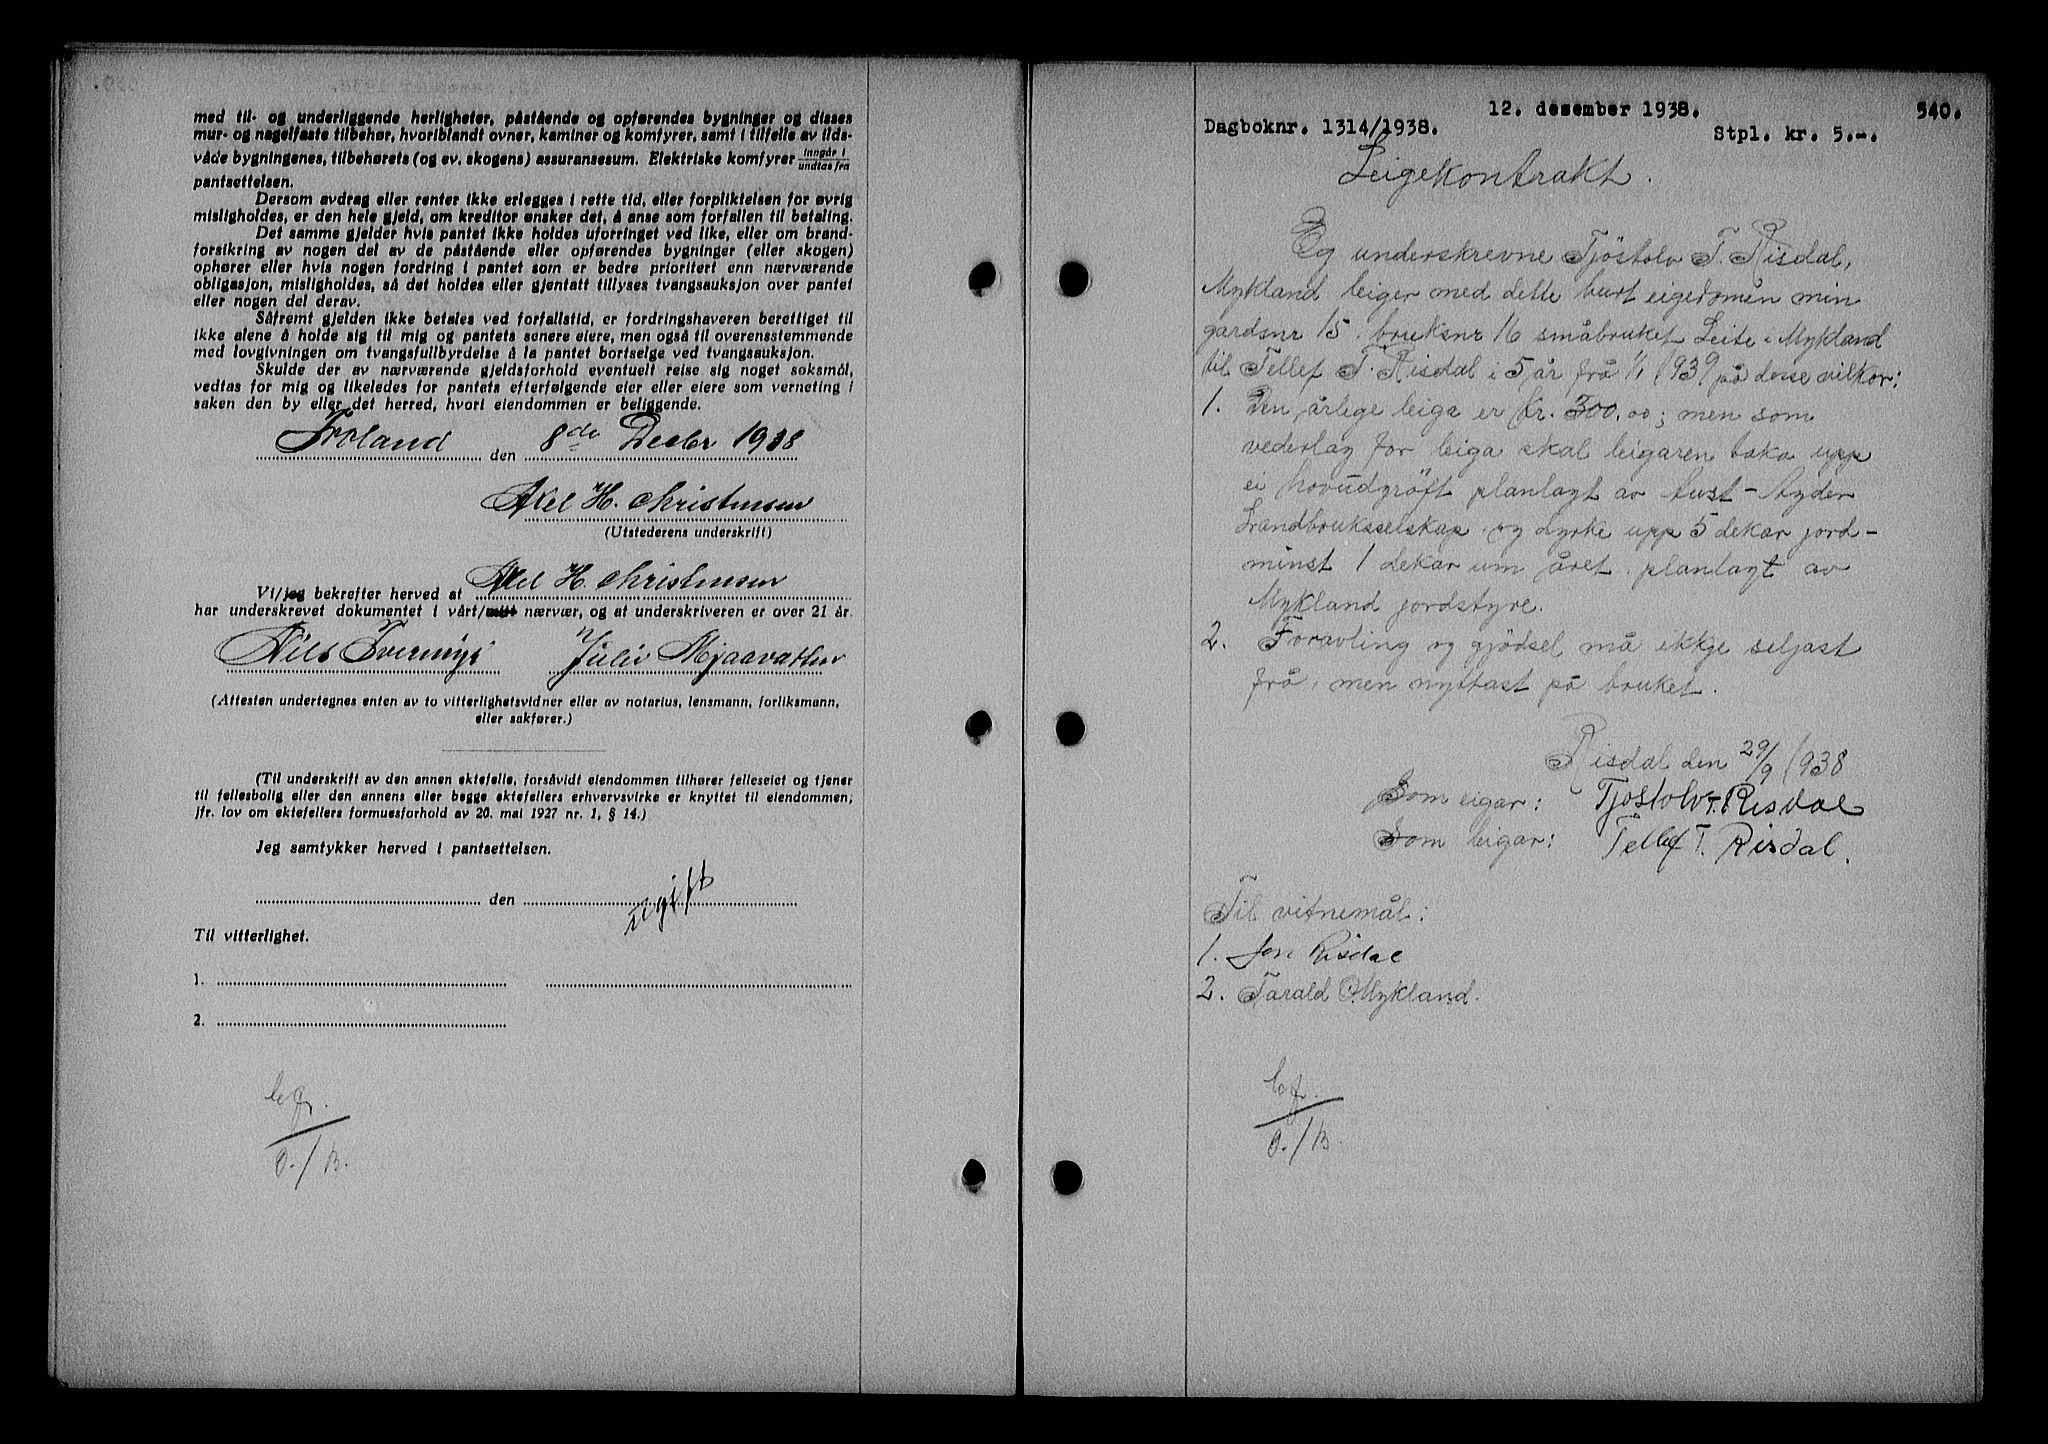 med til- og underliggende herligheter, påstående og opførendes bygninger og disses
mur- og nagelfaste tilbehør, hvoriblandt ovner, kaminer og komfyrer, samt i tilfelle av ilds-
våde bygningenes, tilbehørets (og ev. skogens) assuransesum. Elektriske komfyrer inngår i / undtas fra
pantsettelsen.
Dersom avdrag eller renter ikke erlegges i rette tid, eller forpliktelsen for øvrig
misligholdes, er den hele gjeld, om kreditor ønsker det, å anse som forfallen til betaling.
Det samme gjelder hvis pantet ikke holdes uforringet ved like, eller om brand-
forsikring av nogen del av de påstående eller opførendes bygninger (eller skogen)
ophører eller hvis nogen fordring i pantet som er bedre prioritert enn nærværende
obligasjon, misligholdes, så det holdes eller gjentatt tillyses tvangsauksjon over pantet
eller nogen del derav.
Såfremt gjelden ikke betales ved forfallstid, er fordringshaveren berettiget til
ikke alene å holde sig til mig og pantets senere eiere, men også til overensstemmende
med lovgivningen om tvangsfullbyrdelse å la pantet bortselge ved tvangsauksjon.
Skulde der av nærværende gjeldsforhold eventuelt reise sig noget søksmål,
vedtas for mig og likeledes for pantets efterfølgende eier eller eiere som verneting i
saken den by eller det herred, hvori eiendommen er beliggende.
Froland den 8de Decbr 1938
Axel H. Christensen
(Utstederens underskrift)
Vi/jeg bekrefter herved at Axel H. Christensen
har underskrevet dokumentet i vårt/mitt nærvær, og at underskriveren er over 21 år.
Nils Julie Mjaavatten
(Attesten undertegnes enten av to vitterlighetsvidner eller av notarius, lensmann, forliksmann,
eller sakfører.)
(Til underskrift av den annen ektefelle, forsåvidt eiendommen tilhører felleseiet og tjener
til fellesbolig eller den annens eller begge ektefellers erhvervsvirke er knyttet til eiendommen,
jfr. lov om ektefellers formuesforhold av 20. mai 1927 nr. 1, § 14.)
Jeg samtykker herved i pantsettelsen.
den ugift
Til vitterlighet.
1.
2.
O./B.
12. desember 1938. 540.
Dagboknr. 1314/1938. Stpl. kr. 5.-.
Leigekontrakt.
Eg underskrevne Tjöstolv T. Risdal,
Mykland leiger med dette burt eigedomen min
gardsnr 15, bruksnr 16 småbruket Leite i Mykland
til Tellef T. Risdal i 5 år frå 1/1 1939 på desse vilkor:
1. Den årlege leiga er kr. 300.00; men som
vederlag for leiga skal leigaren taka upp
ei hovudgröft planlagt av Aust-Agder
Landbruksselskap og dyrke upp 5 dekar jord-
minst 1 dekar um året, planlagt av
Mykland jordstyre.
2. Foravling og gjödsel må ikkje seljast
frå, men nyttast på bruket.
Risdal den 29/9 1938
Som eigar: Tjostolv T. Risdal
Som leigar: Tellef T. Risdal.
Til vitnemål:
1. Jon Risdal
2. Tarald O. Mykland.
O./B.